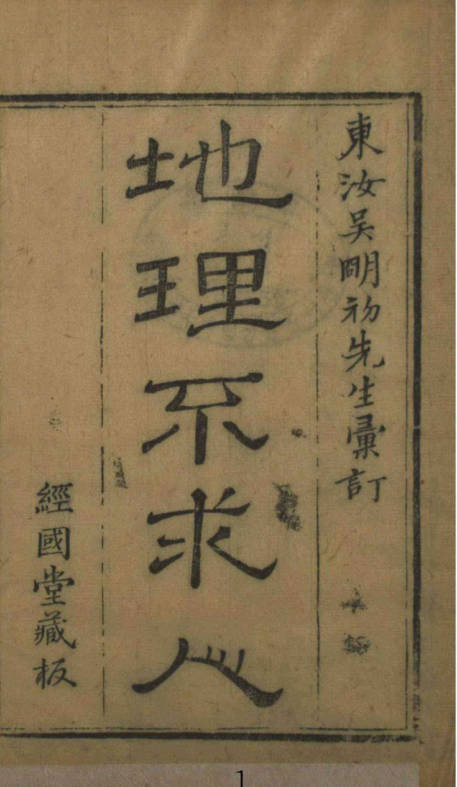 東汝吳明初先生彙訂
地理不求人
經國堂藏板
1